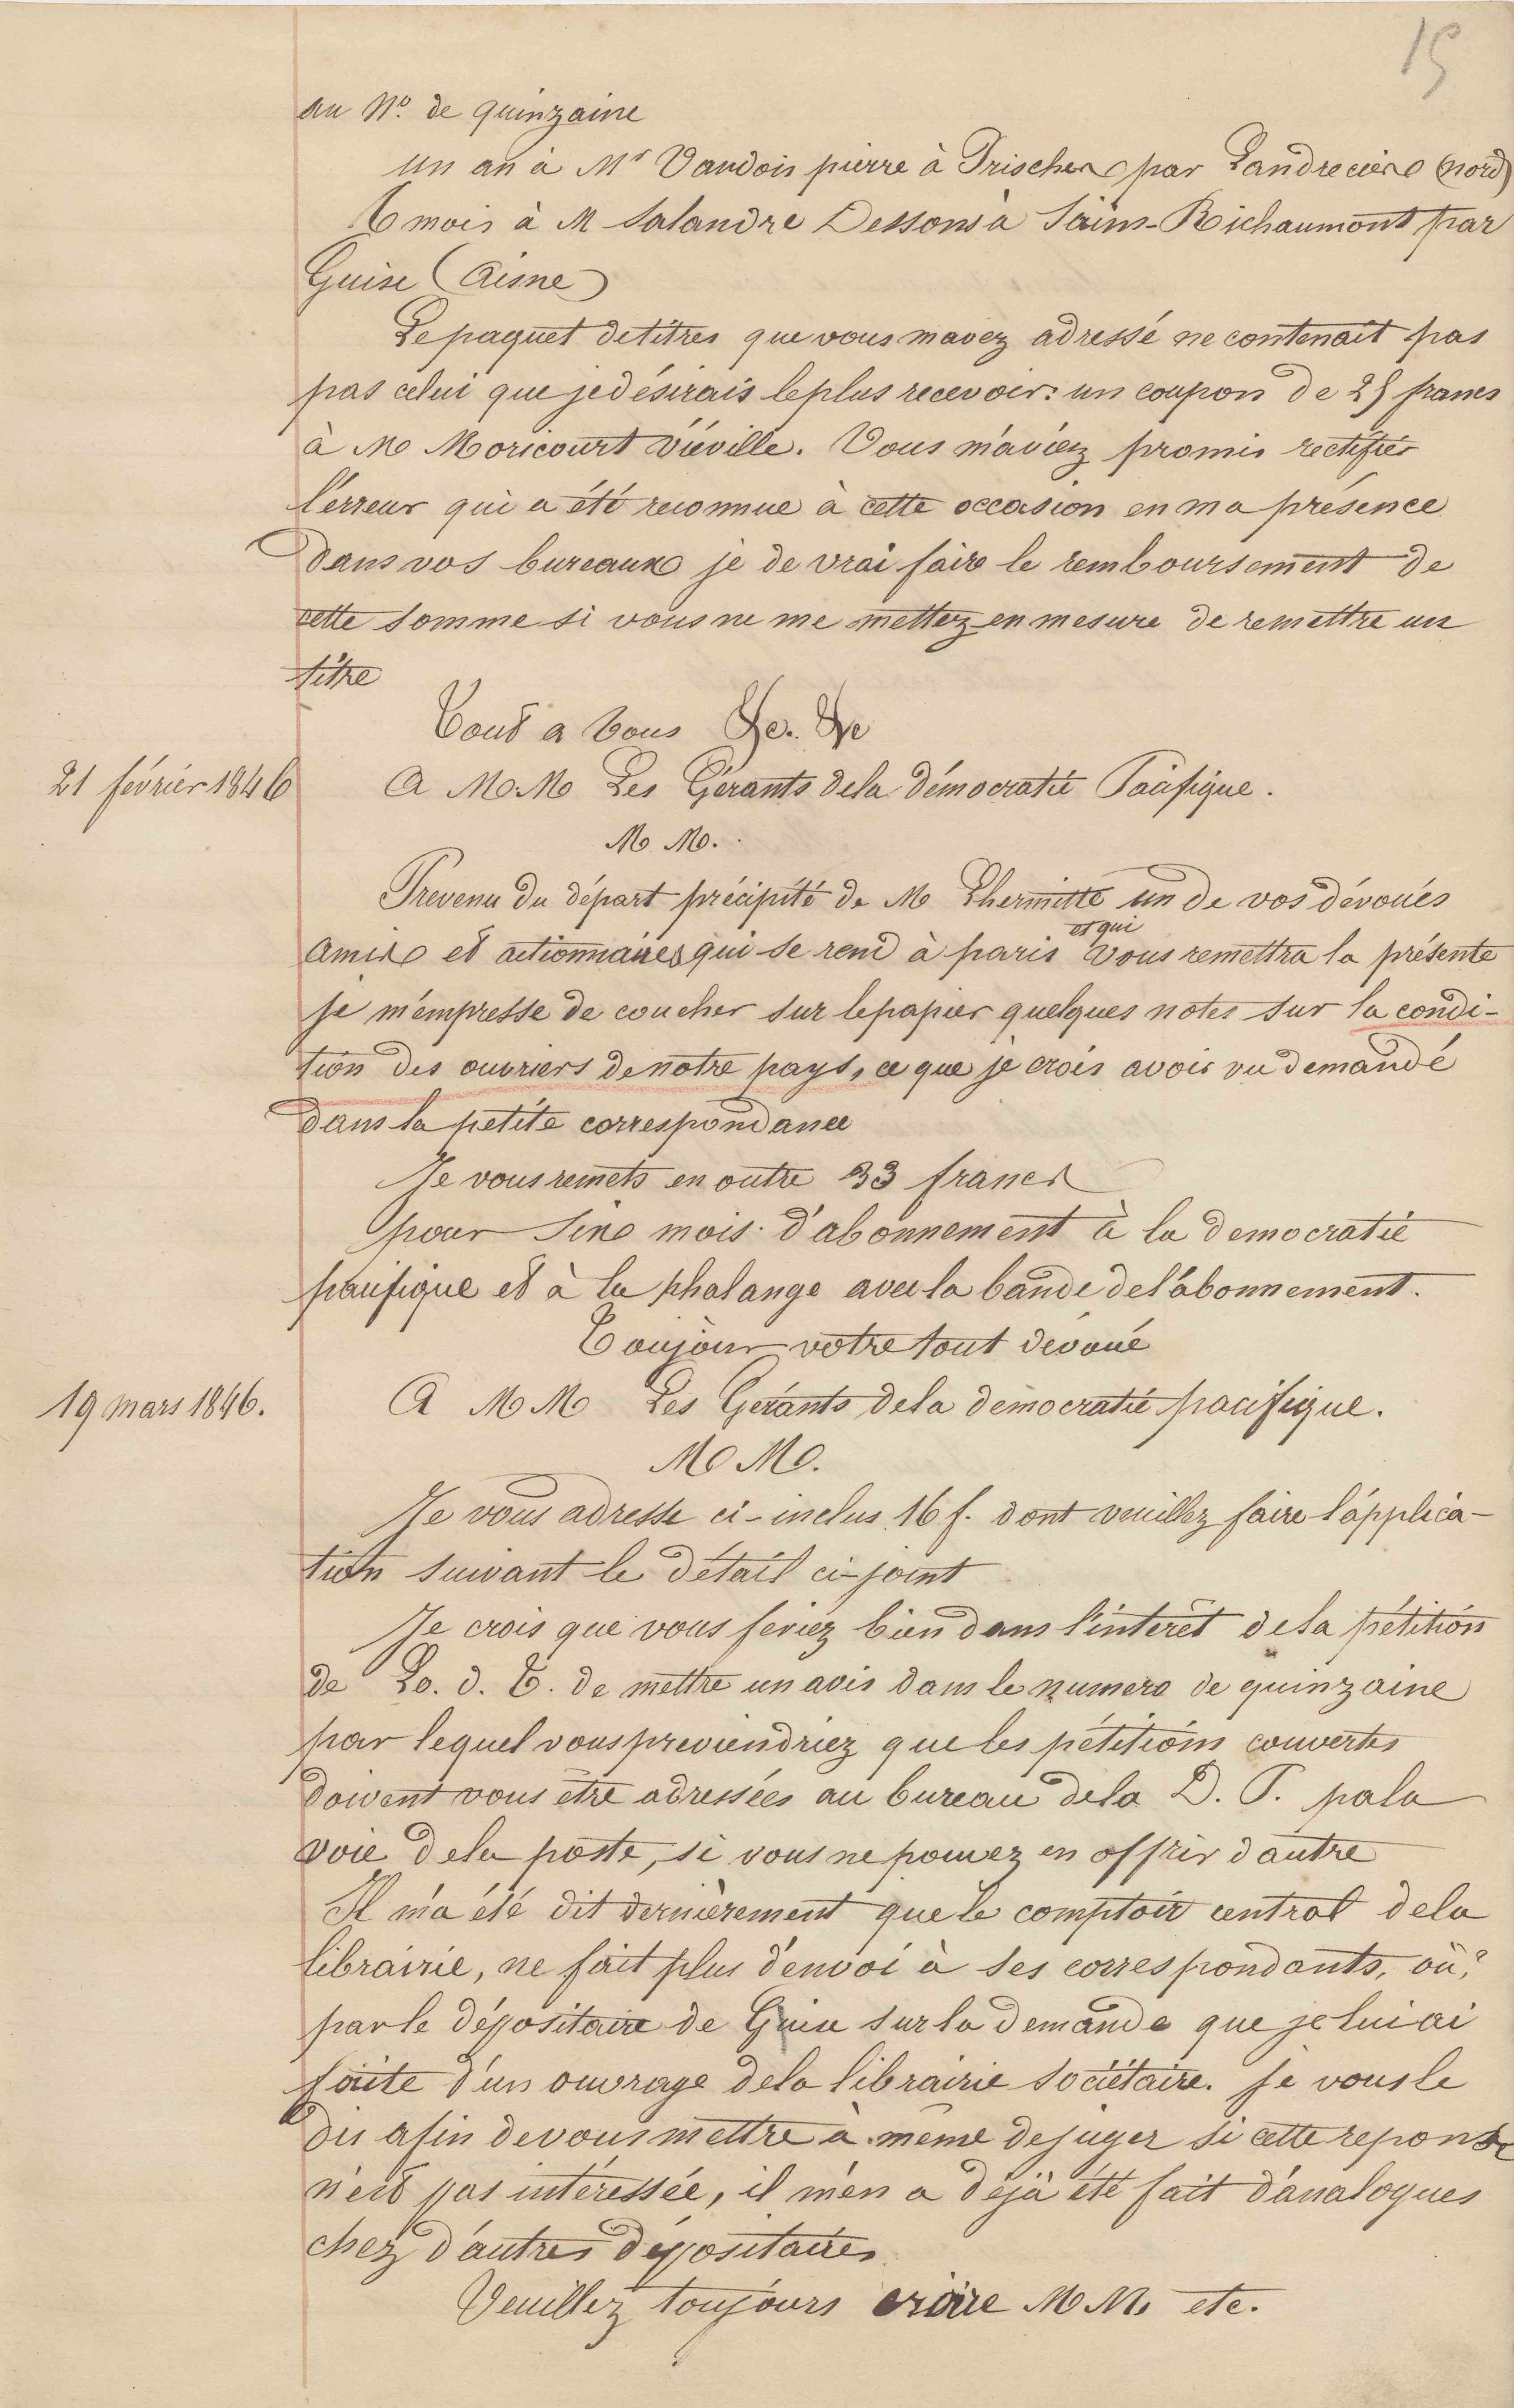 15
au N.º de quinzaine
un an à Mr Vaudois pierre à Prisches par Landrecies (nord)
6 mois à M Salandre Dessons à Sains-Richaumont par
Guise (Aisne)
Le paquet de titres que vous mavez adressé ne contenait pas
pas celui que je désirais le plus recevoir: un coupon de 25 francs
à M Moricourt Viéville. Vous m'aviez promis rectifier
l'erreur qui a été reconnue à cette occasion en ma présence
dans vos bureaux je de vrai faire le remboursement de
cette somme si vous ne me mettez en mesure de remettre un
titre
Tout a vous &c. &c
21 février 1846
A M.M Les Gérants de la démocratie Pacifique.
M M.
Prevenu du départ précipité de M Lhermitte un de vos dévoués
amis et actionnaires qui se rend à paris et qui vous remettra la présente
je m'empresse de coucher sur le papier quelques notes sur la condi-
tion des ouvriers de notre pays, ce que je crois avoir vu demandé
dans la petite correspondance
Je vous remets en outre 33 francs
pour six mois d'abonnement à la democratie
pacifique et à la phalange avec la bande de l'abonnement.
Toujour votre tout devoué
19 mars 1846.
A M M Les Gérants de la démocratie pacifique.
M M.
Je vous adresse ci-inclus 16 f. dont veuillez faire l'applica-
tion suivant le détail ci-joint
Je crois que vous feriez bien dans l'intérêt de la pétition
de Lo. d. T. de mettre un avis dans le numero de quinzaine
par lequel vous previendriez que les pétitions couvertes
doivent vous être adressées au bureau de la D. P. pala
voie de la poste, si vous ne pouvez en offrir d'autre
Il m'a été dit dernièrement que le comptoir central de la
librairie, ne fait plus d'envoi à ses correspondants, où?
par le dépositaire de Guise sur la demande que je lui ai
faite d'un ouvrage de la librairie sociétaire. je vous le
dis afin de vous mettre à même de juger si cette reponse
n'est pas intéressée, il m'en a déjà été fait d'analogues
chez d'autres dépositaires
Veuillez toujours croire M M. etc.